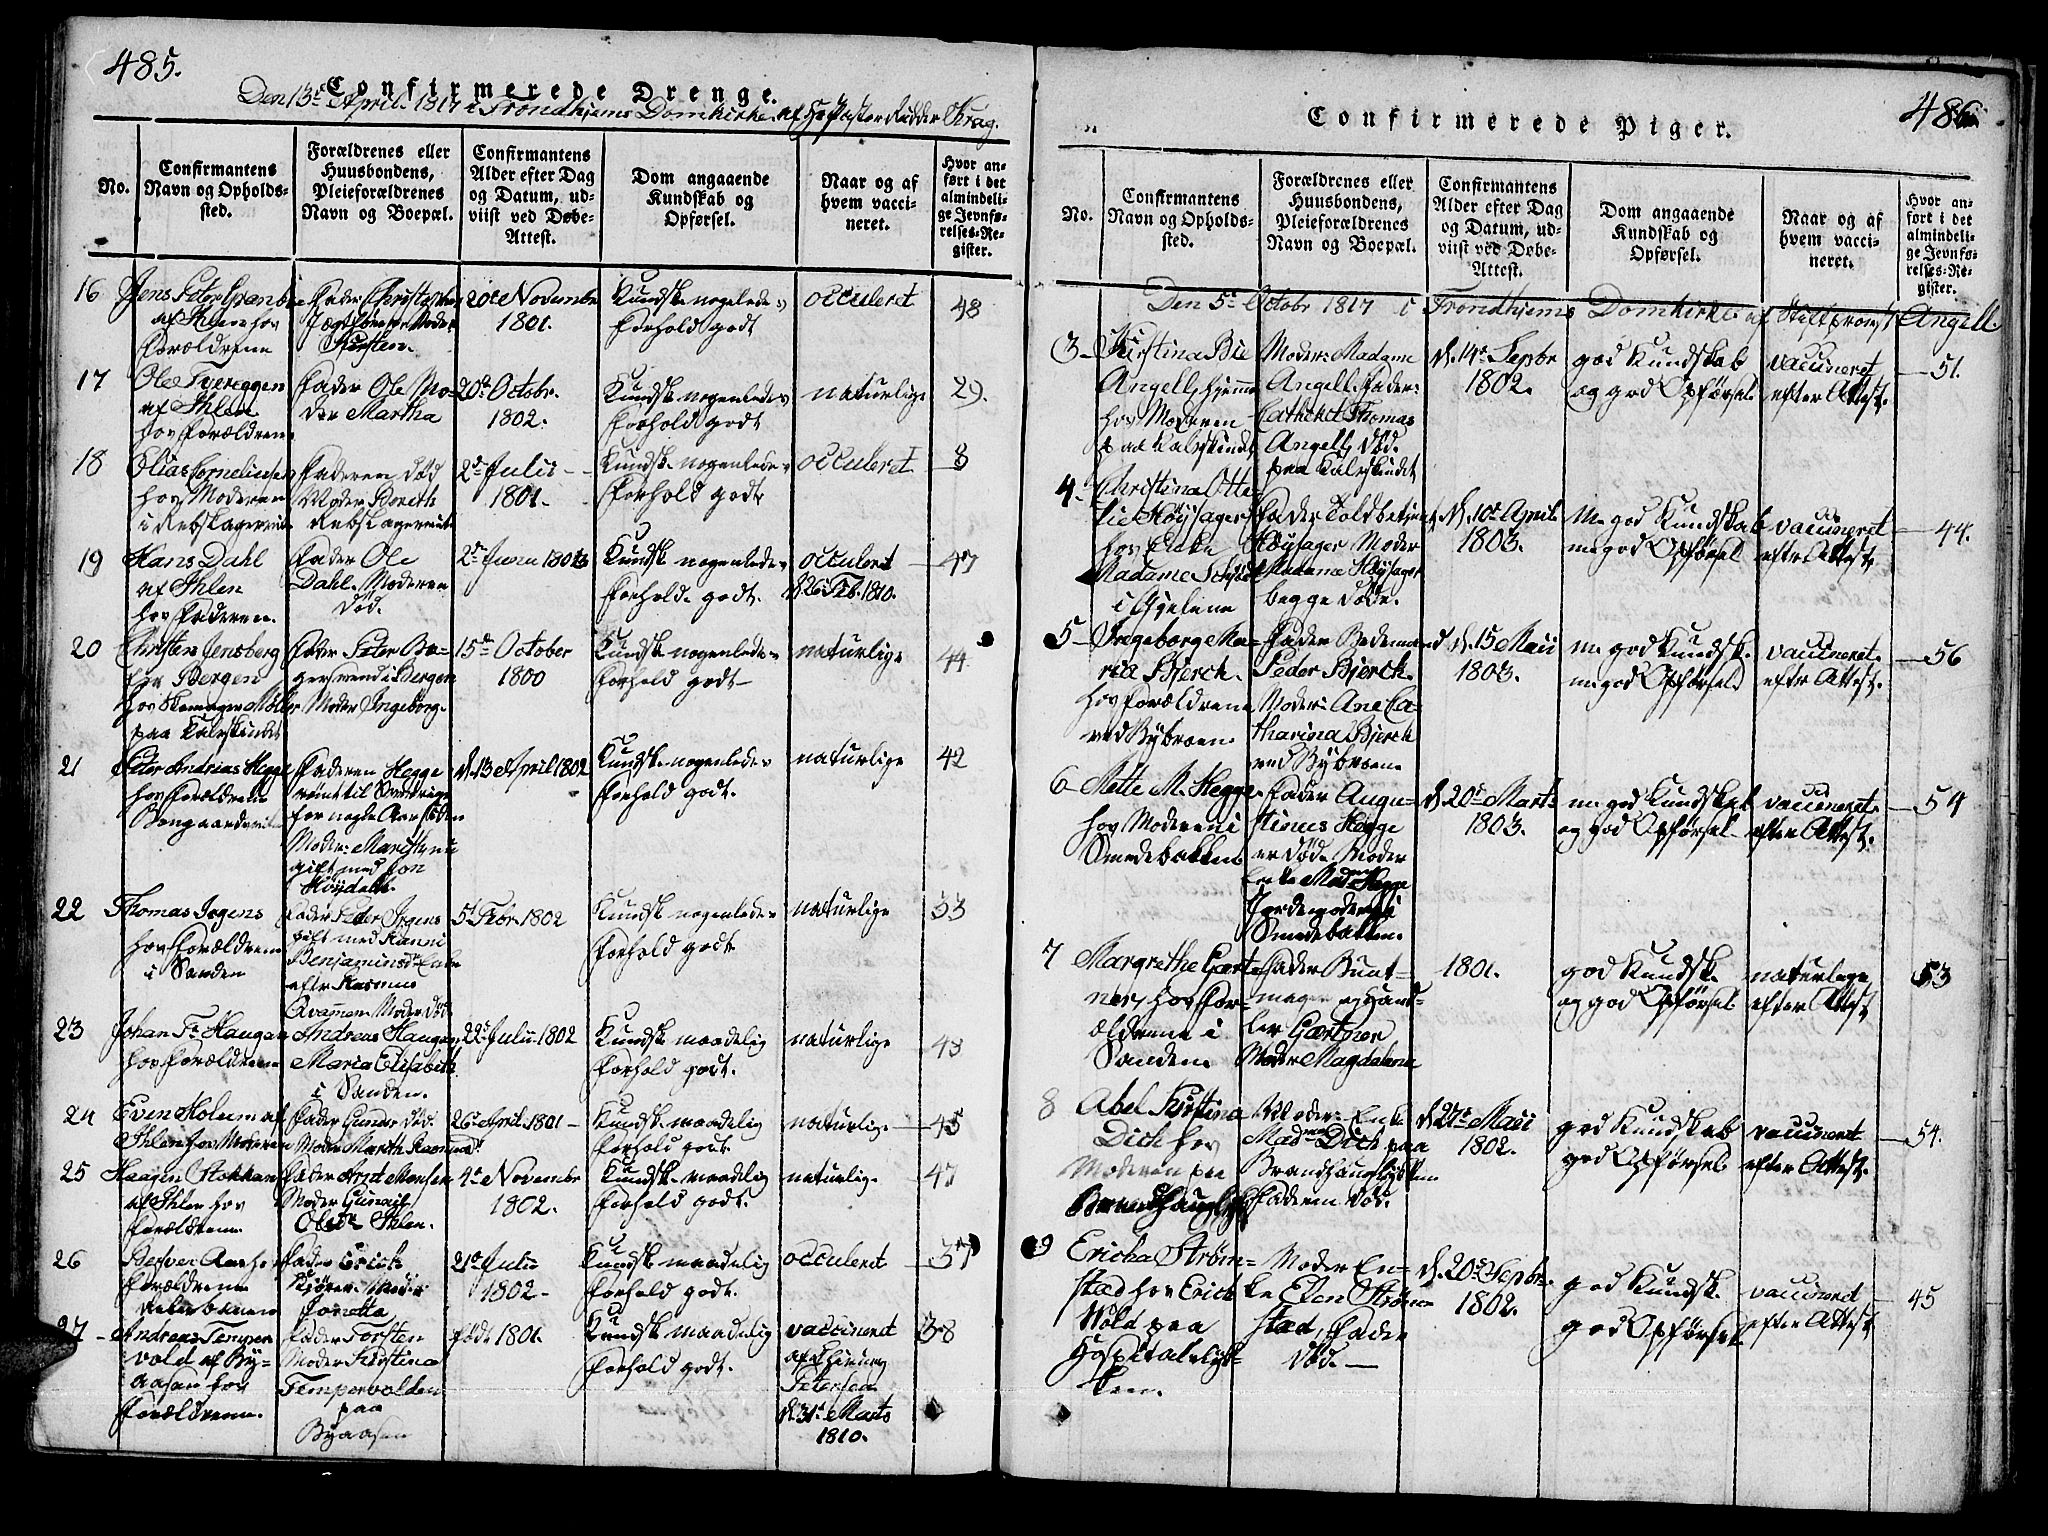 485.
Confirmerede Drenge.
Den 13de April 1817 i Trondhjems Domkirke af Hr Pastor Ridder Krag.
No.
Confirmantens Navn og Opholdssted.
Forældrenes eller Huusbondens, Pleieforældrenes Navn og Boepæl.
Confirmantens Alder efter Dag og Datum, udviist ved Døbe-Attest.
Dom angaaende Kundskab og Opførsel.
Naar og af hvem vaccineret.
Hvor anført i det almindelige Jevnførelses-Register.
16 Jens Peter
af Ihlen hos
Forældrene
Fader Christopher
Moder
Kirsten
20de Novembr
1801.
Kundsk. nogenledes
Forhold godt
occuleret
48
17 Ole Tvereggen
af Ihlen
hos Forældrene
Fader Ole Mo-
der Martha
20de Octobr.
1802.
Kundsk. nogenledes
Forhold godt
naturlige
29.
18 Elias Corneliusen
hos Moderen
i Rebslagerveiten
Faderen død
Moder Bereth
Rebslagerveiten
2de Julii
1801.
Kundsk. nogenledes
Forhold godt
occuleret
8
19 Hans Dahl
af Ihlen
hos Faderen.
Fader Ole
Dahl. Moderen
død.
2de Junii
Kundsk. nogenledes
Forhold godt.
occuleret
d. 26 Feb. 1810.
47
20 Christen Jensberg
fra Bergen
hos Skomager Møller
paa Kalvskindet
Fader Peter
i Bergen
Moder Ingeborg.
15de October
1800
Kundsk. nogenledes
Forhold godt
naturlige
44
21 Peter Andreas Hegge
hos Forældrene
Faderen Hegge
rømt til Sverrig
for nogle Aar siden
Moder: Marith nu
gift med Jon
Høydahl.
d. 13 April 1802
Kundsk. nogenledes
Forhold godt.
naturlige
42
22 Thomas Irgens
hos Forældrene
i Sanden
Fader Peder Irgens
gift med
Benjaminsdr. Enke
efter Rasmus
Moder død
5te Febr. 1802
Kundsk. nogenledes
Forhold godt
naturlige
33
23 Johan Fr. Haugan
hos Forældrene
Andreas Haugan
Maria Elisabeth
i Sanden.
22de Julii 1802
Kundsk. maadelig
Forhold godt.
naturlige
43
24 Even Holum af
Ihlen hos Moderen
Fader Gunder død.
Moder Marth
26de April 1801
Kundsk. maadelig
Forhold godt
naturlig
45
25 Haagen Stokkan
af Ihlen hos
Forældrene
Fader Arnt Monsen
Moder
Olsdr Ihlen.
4de Novembr
1802.
Kundsk. maadelig
Forhold godt.
naturlig
47
26
Forældrene
Fader Erich
21de Julii
1802
Kundsk. maadelig
Forhold godt.
occuleret
37
27 Andreas Temper
vold af By-
aasen hos
Forældrene.
Fader Torsten
Moder Kirstina
Tempervolden
paa
Byaasen
født 1801.
Kundsk. maadelig
Forhold godt.
vaccineret
af Chirurg
Petersen
d. 31te Marts
1810.
38
486
Confirmerede Piger.
No.
Confirmantens Navn og Opholdssted.
Forældrenes eller Huusbondens, Pleieforældrenes Navn og Boepæl.
Confirmantens Alder efter Dag og Datum, udviist ved Døbe-Attest.
Dom angaaende Kundskab og Opførsel.
Naar og af hvem vaccineret.
Hvor anført i det almindelige Jevnførelses-Register.
Den 5te Octobr 1817 i Trondhjems Domkirke af Stiftprovst Angell.
3 Kirstina Bie
Angell, hjemme
hos Moderen
paa Kalvskindet
Moder: Madame
Angell. Fader:
Catechet Thomas
Angell, død.
paa Kalvskindet
d. 14de Septbr
1802.
god Kundskab
og god Opførsel
vaccineret
efter Attest.
51.
4. Christina Otte-
lie Høysager
hos Enke
Madame
i Ihlen
Fader Toldbetjent
Høysager Moder
Madame Høysager
begge døde.
d. 10de April
1803.
m. god Kundskab
m. god Opførsel
vaccineret
efter Attest
44.
5 Ingeborg Ma-
ria Bjerck.
hos Forældrene
ved Bybroen
Fader Bedemand
Peder Bjerck.
Moder: Ane Ca-
tharina Bjerck
ved Bybroen
d. 15 Maii
1803.
m. god Kundsk.
m. god Opførsel
vaccineret
efter Attest.
56
6 Mette M. Hegge
hos Moderen i
Smedebakken
Fader Augu-
stinus Hegge
er død. Moder
Enke Madme Hegge
Jordemoder i
Smedebakken.
d. 20de Marts
1803.
m. god Kundskab
og god Opførsel
vaccineret
efter Attest.
54
7 Margrethe Gært-
ner, hos For-
ældrene i
Sanden
Fader Bunt-
mager og Hand-
ler Gærtner
Moder Magdalena
1801.
god Kundsk.
og god Opførsel
naturlige
efter Attest
53
8 Abel Kirstina
Dich hos
Moderen paa
Moder: Enke
Madme Dich paa
Faderen død.
d. 27de Maii
1802.
god Kundskab
god Opførsel
vaccineret
efter Attest.
54.
9 Ericha Strøm-
stad hos Erich
Wold paa
Hospitalsløk-
ken.
Moder En-
ke Elen Strøm-
stad, Fader
død.
d. 20de Septbr.
1802.
god Kundsk.
god Opførsel
vaccineret
efter Attest
45